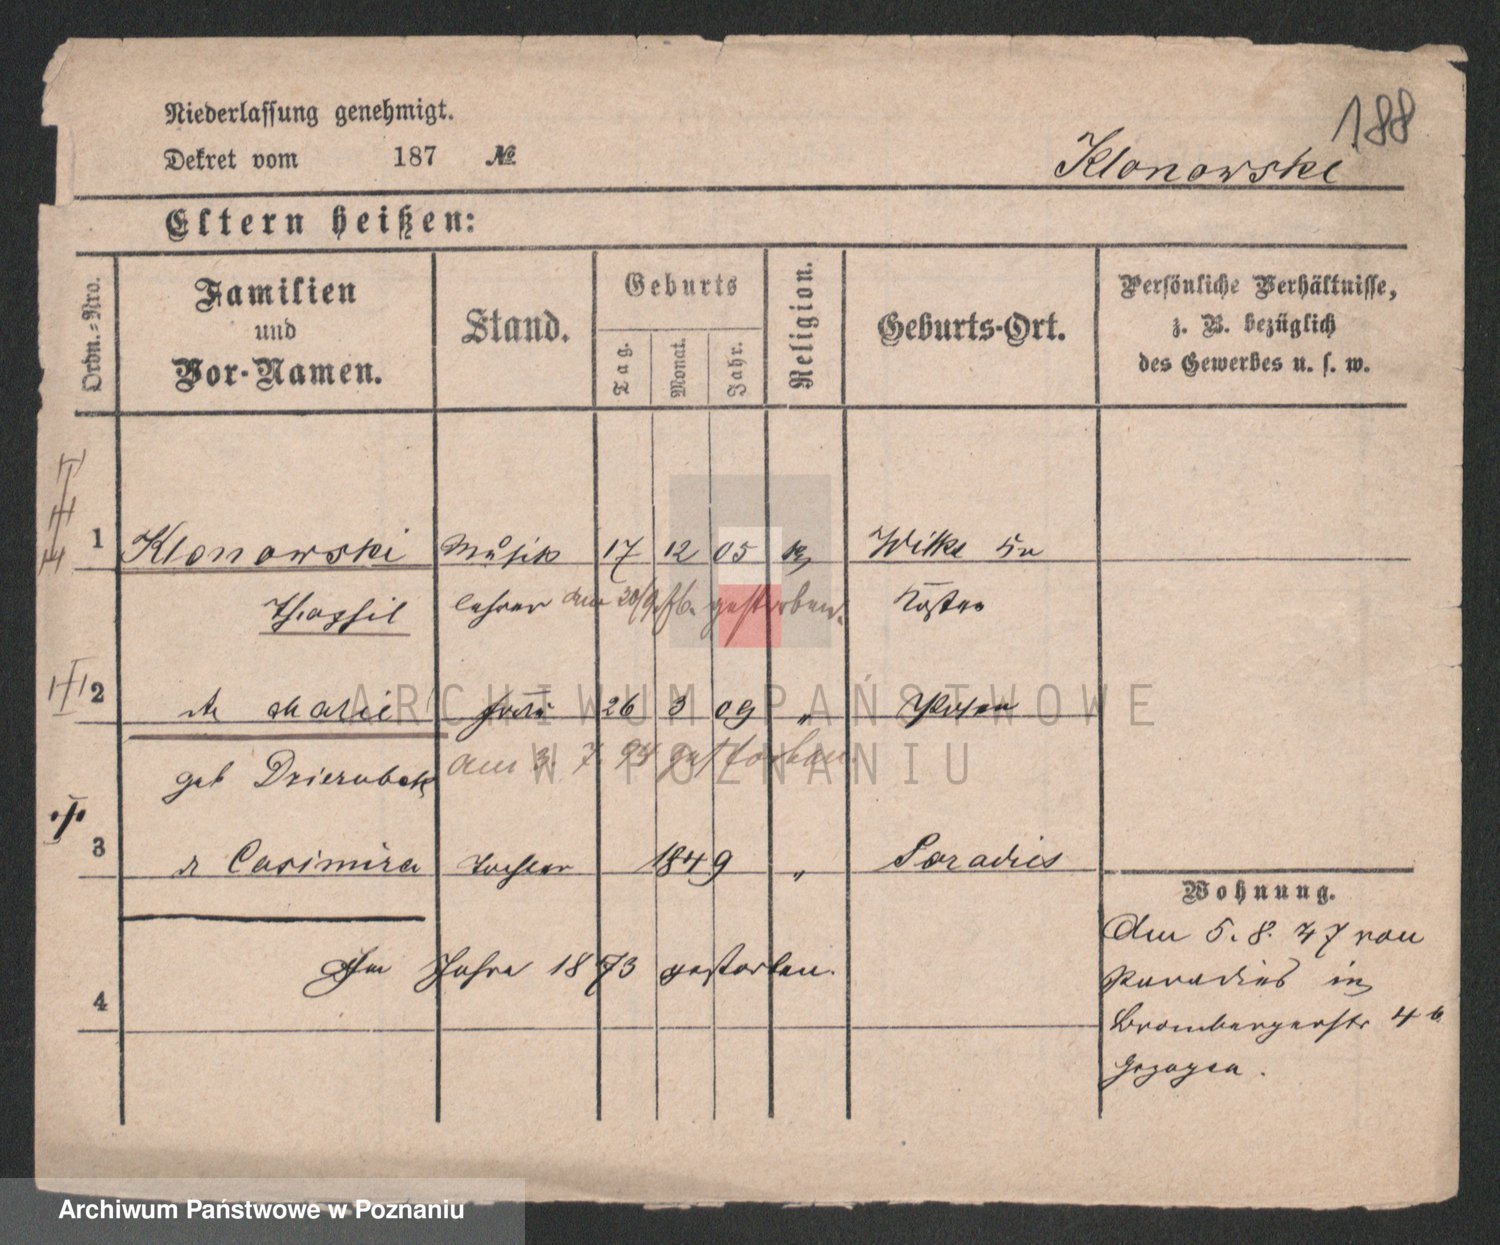 188
Niederlassung genehmigt.
Dekret vom 187 №
Klonowski
Eltern heißen:
Ordn.-Nro.
Familien
und
Vor-Namen.
Stand.
Geburts
Tag.
Monat.
Jahr.
Religion.
Geburts-Ort.
Persönliche Verhältnisse,
z. B. bezüglich
des Gewerbes u. s. w.
1 Klonowski Musik 17 12 05 Wilke
lehrer am gestorben. Kosten
2 Marie Frau 26 3 09 " Posen
geb am 3. 7. 94 gestorben
3 Casimira Tochter 1849 " Paradies
Im Jahre 1873 gestorben.
4
Wohnung.
Am 5. 8. 47 von
Paradies in
Brombergerstr 4b
gezogen.
ARCHIWUM PAŃSTWOWE
W POZNANIU
Archiwum Państwowe w Poznaniu